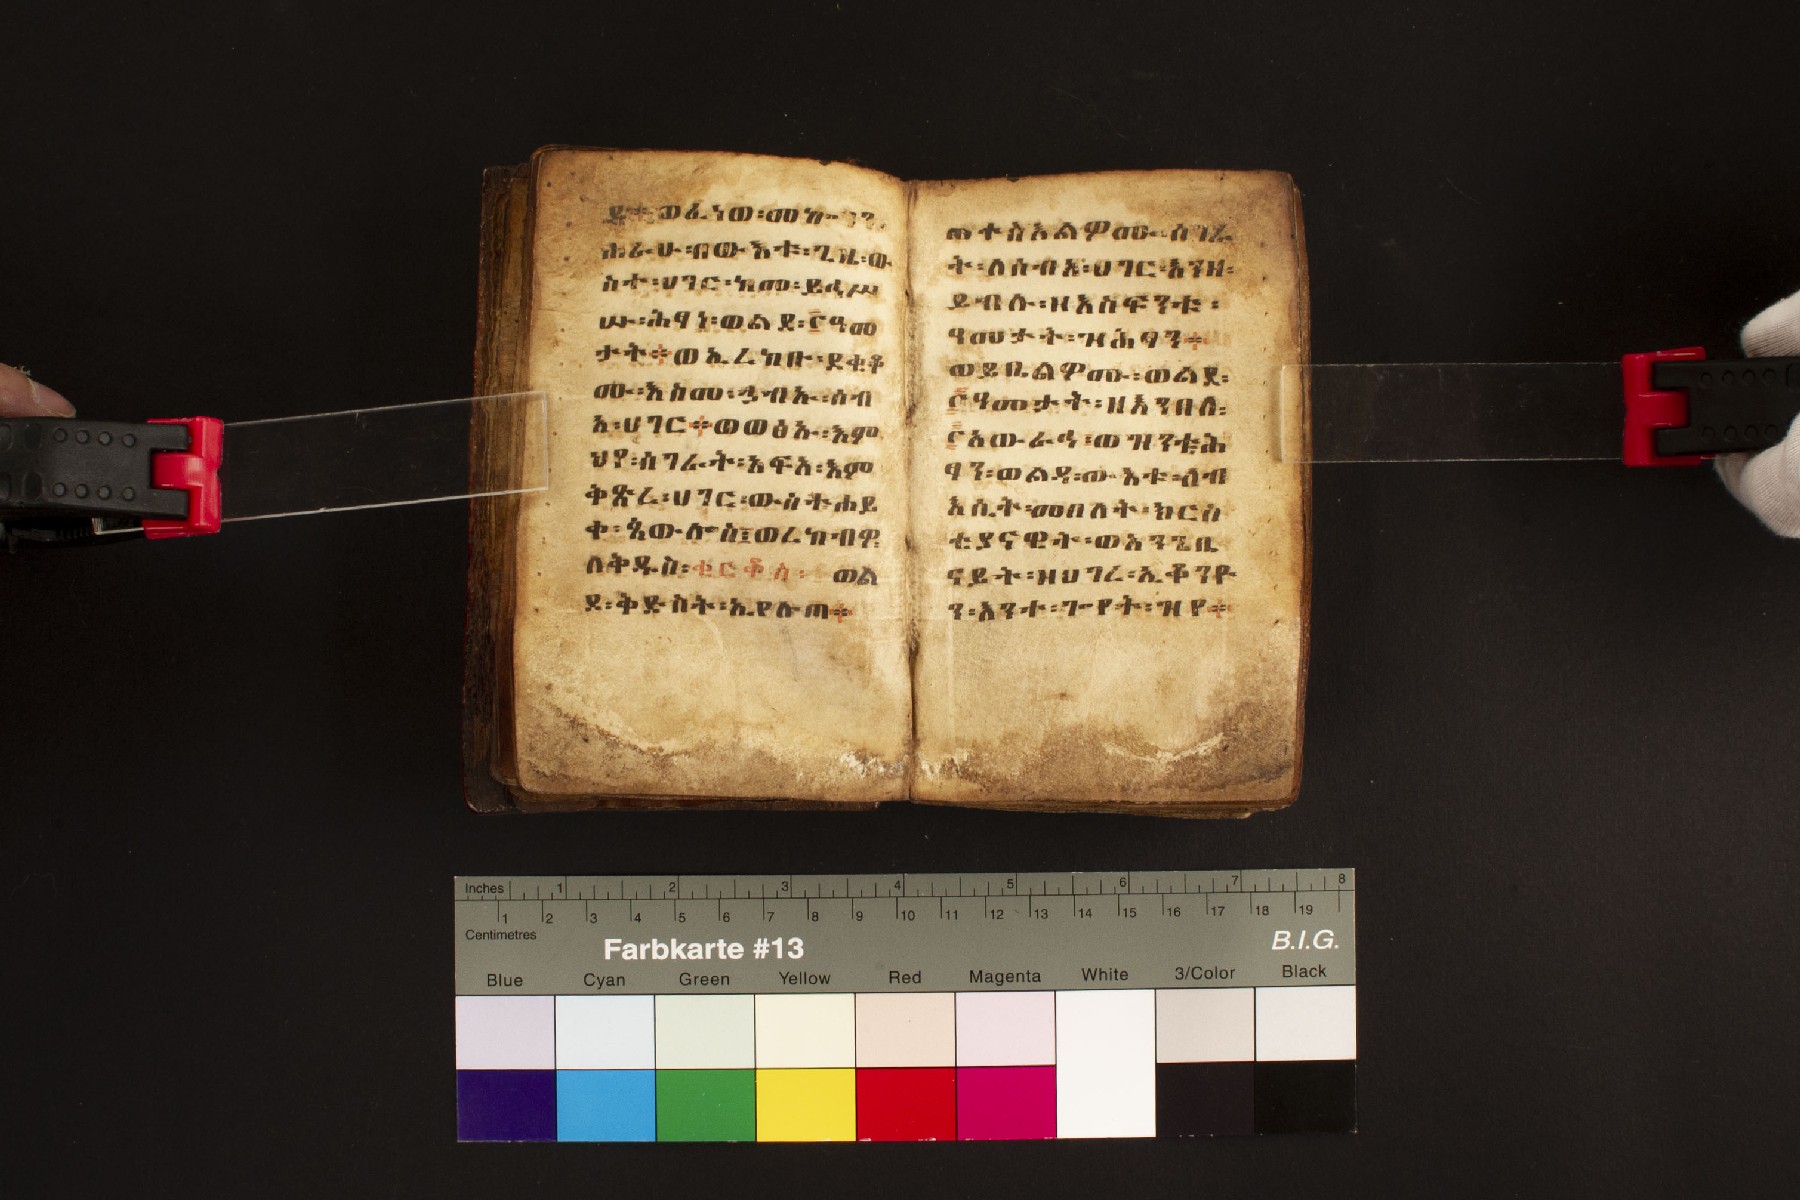 ይ፡ወፈነወ፡መኰንን፡
ሐራሁ፡ብውእቱ፡ጊዜ፡ው
ስተ፡ሀገር፡ከመ፡ይኅሥ
ሡ፡ሕፃነ፡ወልደ፡፫ዓመ
ታት፨ወኢረከቡ፡ደቂቆ
ሙ፡እስመ፡ኃብኡ፡ሰብ
አ፡ሀገር፨ወወፅኡ፡እም
ህየ፡ሰገራት፡አፍአ፡እም
ቅጽረ፡ሀገር፡ውስተሐይ
ቀ፡ባሕር፡ወረከብዎ
ለቅዱስ፡ቂርቆስ፡ ወል
ደ፡ቅድስት፡ኢየሉጣ፨
ወተስእልዎሙ፡ሰገራ
ት፡ለሰብአ፡ሀገር፡እንዘ፡
ይብሉ፡ዘእስፍንቱ፡
ዓመታት፡ዝሕፃን፨
ወይቤልዎሙ፡ወልደ፡
፫ዓመታት፡ዘእንበለ፡
፫አውራኅ፡ወዝንቱሕ
ፃን፡ወልዳ፡ውእቱ፡ለብ
እሲት፡መበለት፡ክርስ
ቲያናዊት፡ወአንጌቤ
ናይት፡ዘሀገረ፡ኢቆንዮ
ን፡እንተ፡ጐየት፡ዝየ፨
Inches 1 2 3 4 5 6 7 8
1 2 3 4 5 6 7 8 9 10 11 12 13 14 15 16 17 18 19
Centimetres
Farbkarte #13 B.I.G.
Blue Cyan Green Yellow Red Magenta White 3/Color Black